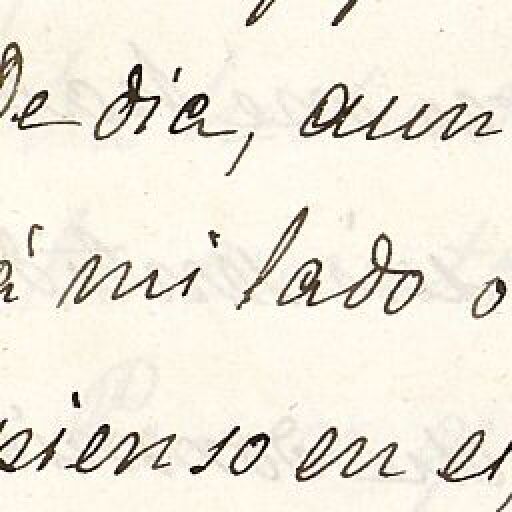 De dia, aun
á mi lado o
pienso en es